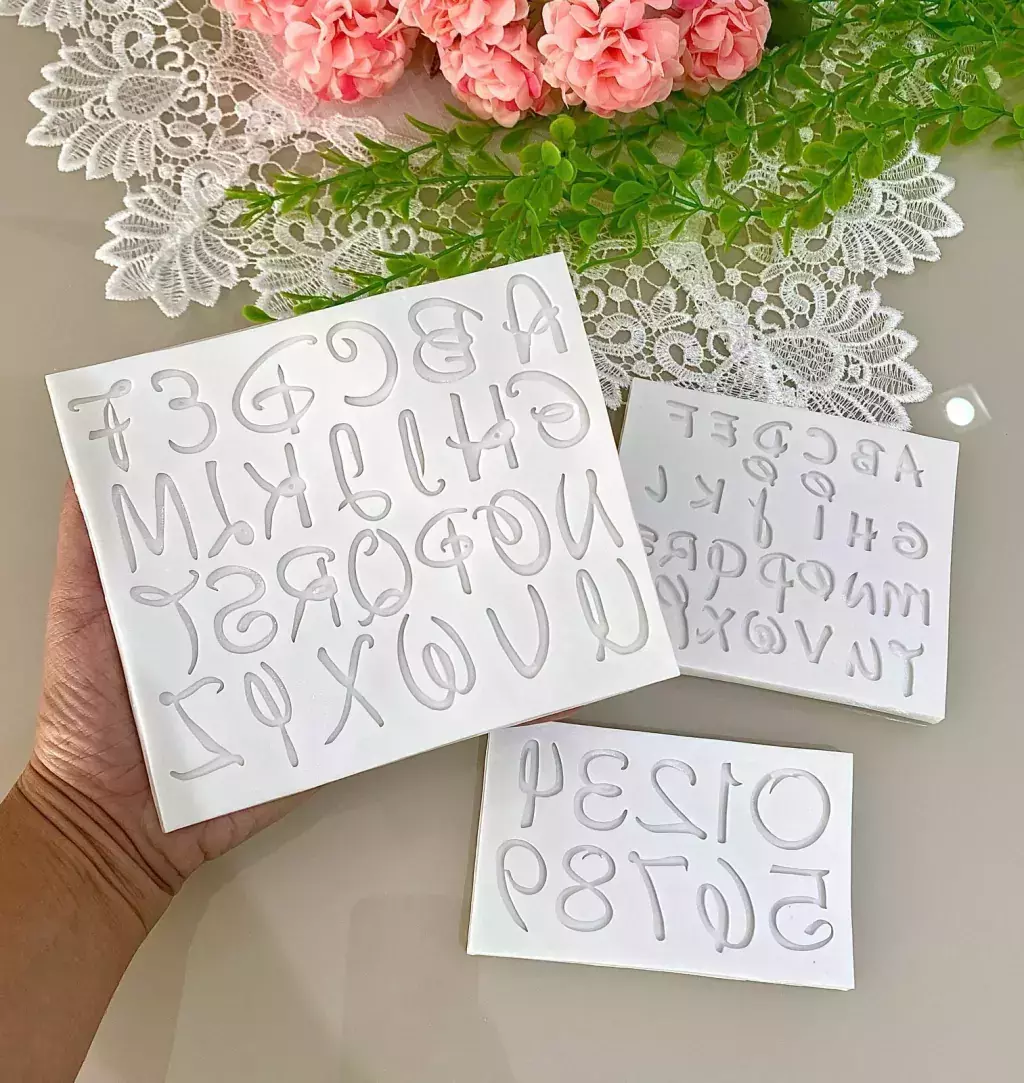 A B C D E F
G H I J K L M
N O P Q R S T
U V W X Y Z
A B C D E F
G H I J K L
M N O P Q R S
T U V W X Y
0 1 2 3 4
5 6 7 8 9